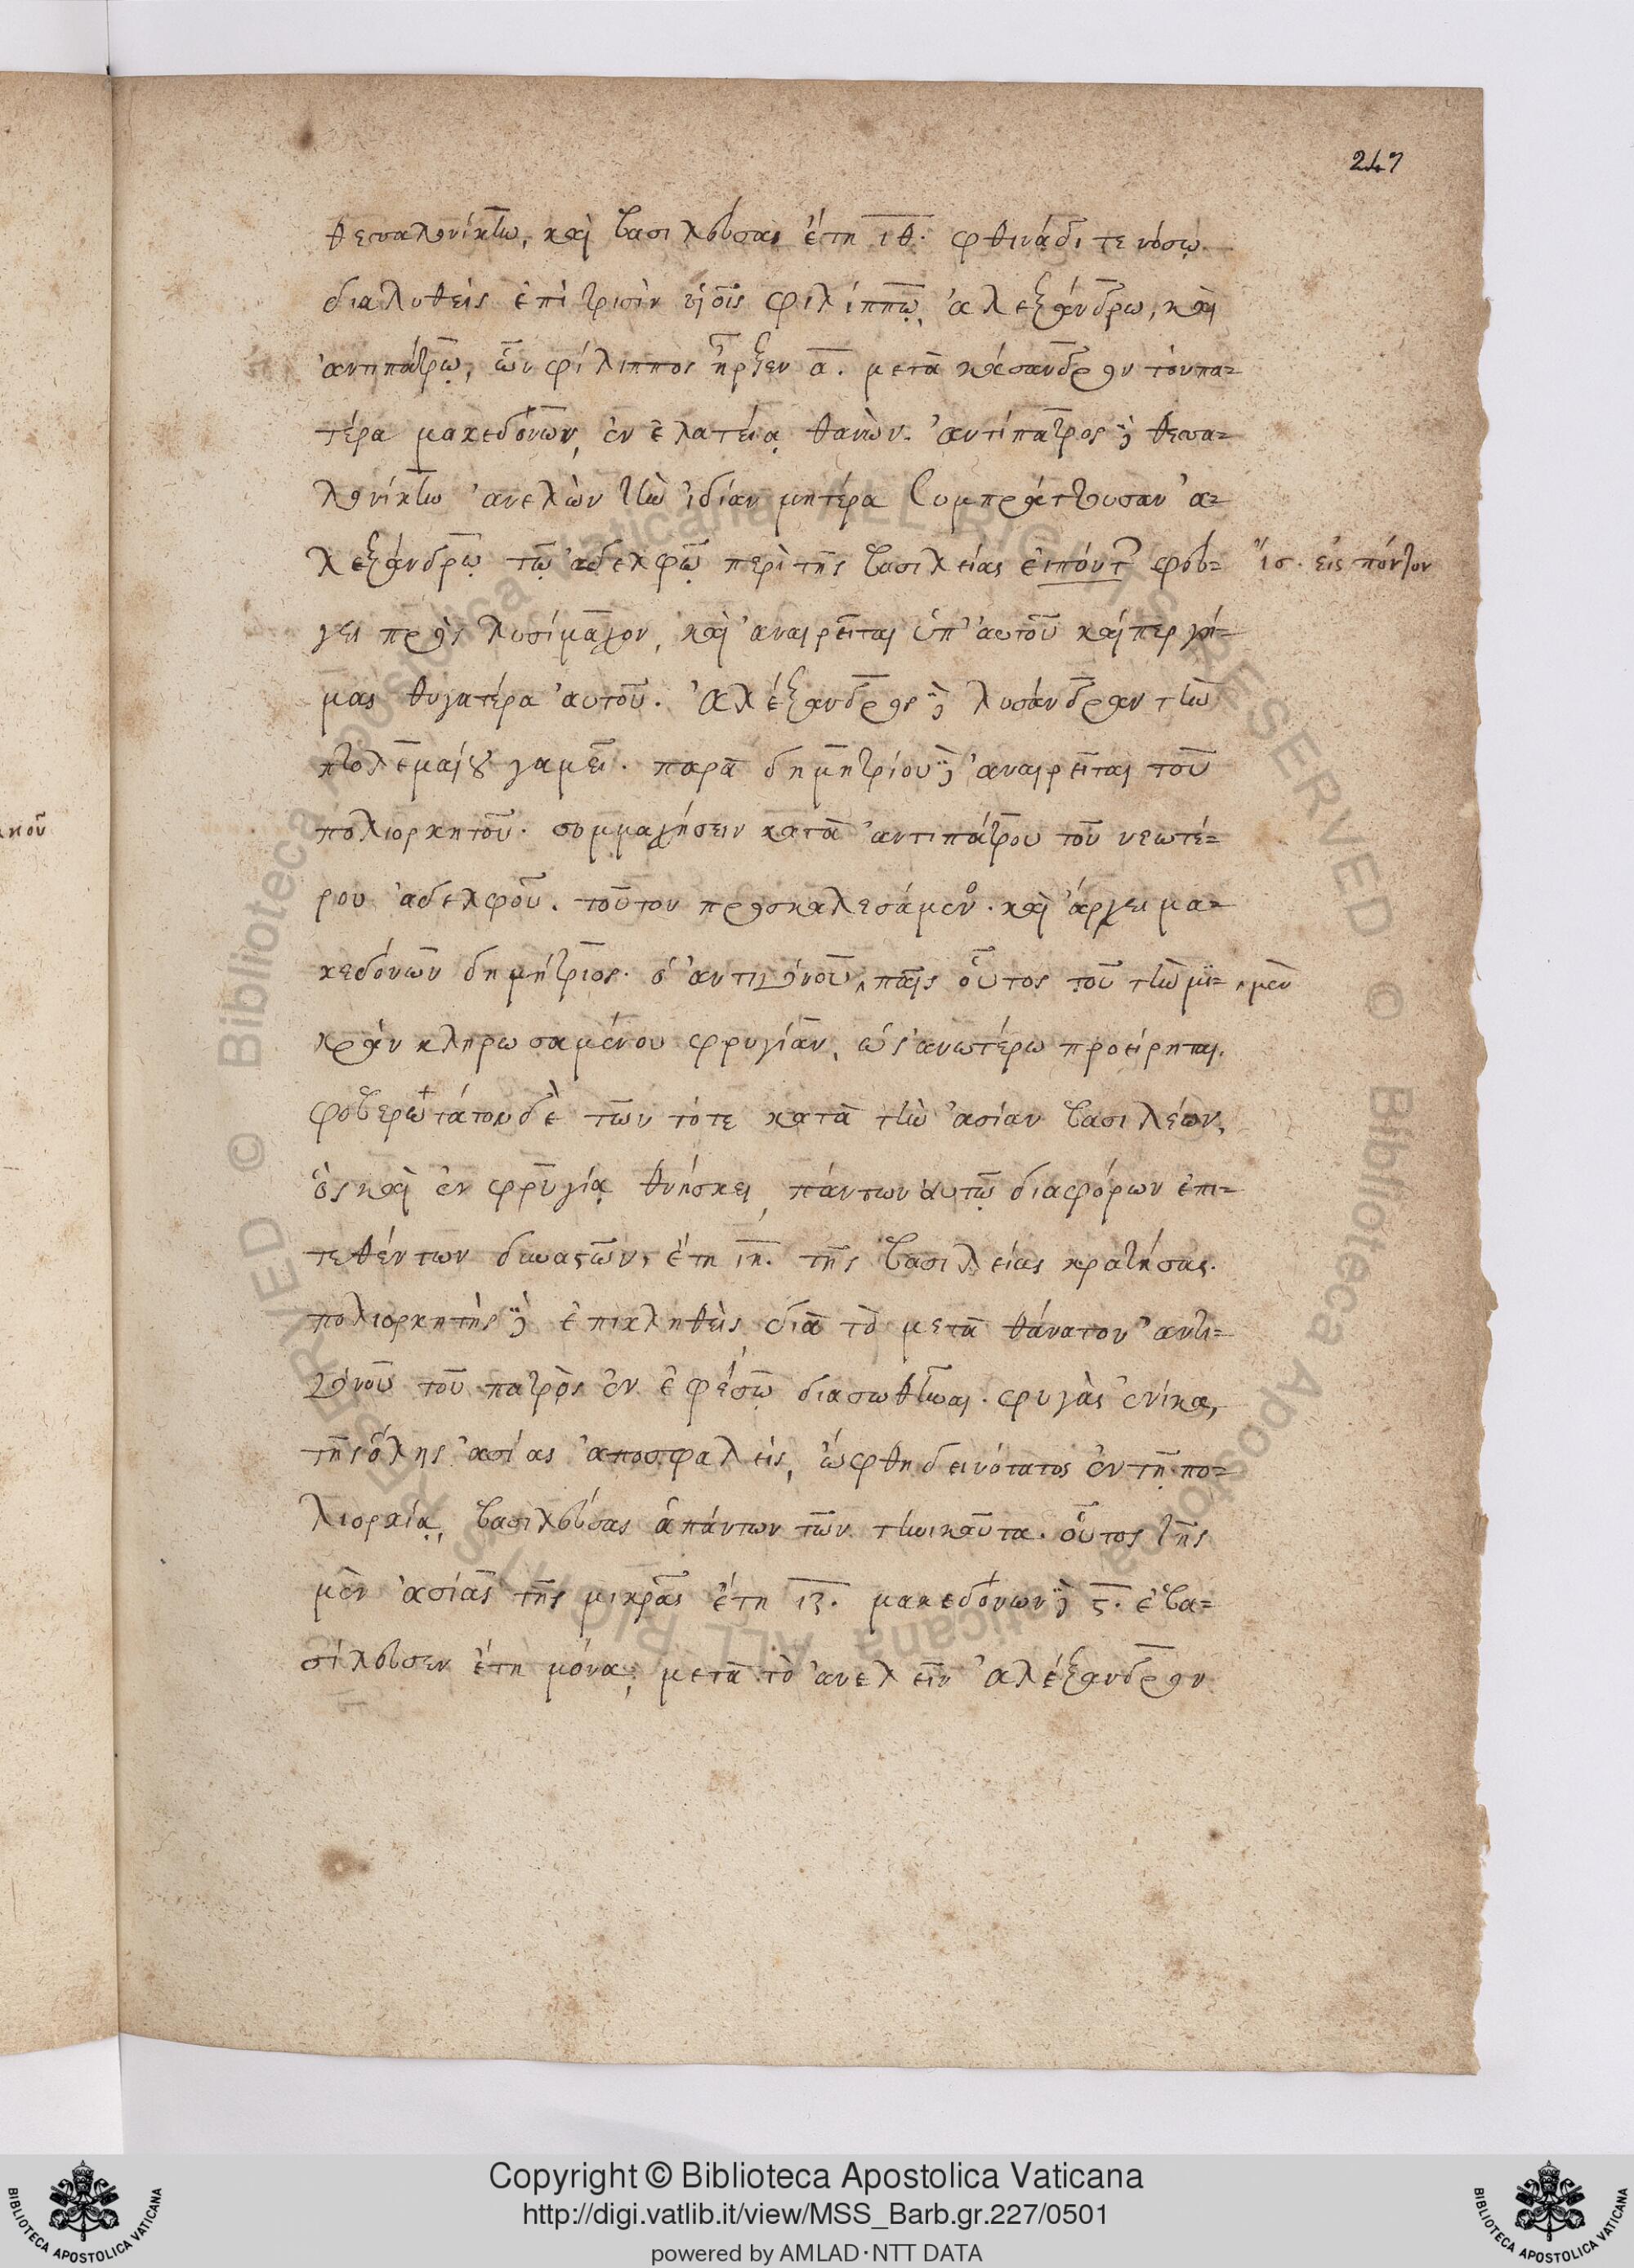 247
θεσσαλονίκην, καὶ βασιλεύσας ἔτη ιθ. φθινάδι τε νόσῳ
διαλυθεὶς ἐπὶ τρισὶν υἱοῖς φιλίππῳ, ἀλεξάνδρω, καὶ
ἀντιπάτρῳ, ὧν φίλιππος ἦρξεν α. μετὰ κάσανδρον τὸν πα-
τέρα μακεδόνων, ἐν ἐλατείᾳ θανὼν. ἀντίπατρος δὲ θεσσα-
λονίκην ἀνελὼν τὴν ἰδίαν μητέρα συμπράττουσαν ἀ-
λεξάνδρῳ τῷ ἀδελφῷ περὶ τῆς βασιλείας εἰπόντ φεύ- ἴσ. εἰς πόντον
γει πρὸς λυσίμαχον, καὶ ἀναιρεῖται ὑπ' αὐτοῦ καίπερ γή-
μας θυγατέρα αὐτοῦ. ἀλέξανδρος δὲ λυσάνδραν τὴν
πτολεμαίου γαμεῖ. παρὰ δημητρίου δὲ ἀναιρεῖται τοῦ
πολιορκητοῦ. συμμαχήσειν κατὰ ἀντιπάτρου τοῦ νεωτέ-
ρου ἀδελφοῦ. τοῦτον προσκαλεσάμενος. καὶ ἄρχει μα-
κεδόνων δημήτριος. ὁ ἀντιγόνου παῖς οὗτος τοῦ τὴν μι- μὲν
κρὰν κληρωσαμένου φρυγίαν, ὡς ἀνωτέρω προείρηται.
φοβερωτάτου δὲ τῶν τότε κατὰ τὴν ἀσίαν βασιλέων,
ὃς καὶ ἐν φρυγίᾳ θνήσκει, πάντων αὐτῷ διαφόρων ἐπι-
τεθέντων δυναστῶν, ἔτη ιη. τῆς βασιλείας κρατήσας.
πολιορκητὴς δὲ ἐπικληθεὶς διὰ τὸ μετὰ θάνατον ἀντι-
γόνου τοῦ πατρὸς ἐν ἐφέσῳ διασωθῆναι. φυγὰς ἐνίκα,
τῆς ὅλης ἀσίας ἀποσφαλεὶς, ὤφθη δεινότατος ἐν τῇ πο-
λιορκίᾳ, βασιλεύσας ἁπάντων τῶν τηνικαῦτα. οὗτος τῆς
μὲν ἀσίας τῆς μικρᾶς ἔτη ιζ. μακεδόνων δὲ ϛ. ἐβα-
σίλευσεν ἔτη μόνα, μετὰ τὸ ἀνελεῖν ἀλέξανδρον
Copyright © Biblioteca Apostolica Vaticana
http://digi.vatlib.it/view/MSS_Barb.gr.227/0501
powered by AMLAD·NTT DATA